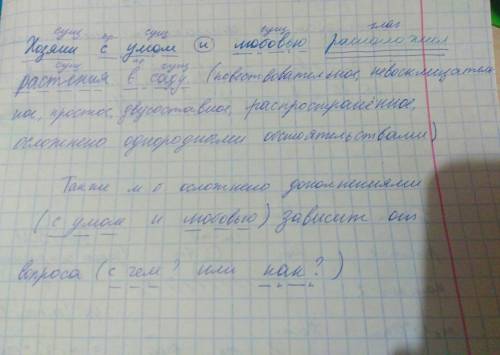 сущ пр сущ сущ глаг
Хозяин с умом и любовью расположил
сущ пр сущ
растения в саду. (повествовательное, невосклицатель
ное, простое, двусоставное, распространённое,
осложнено однородными обстоятельствами)
Также м о осложнено дополнениями
(с умом и любовью) зависит от
вопроса (с чем? или как?)